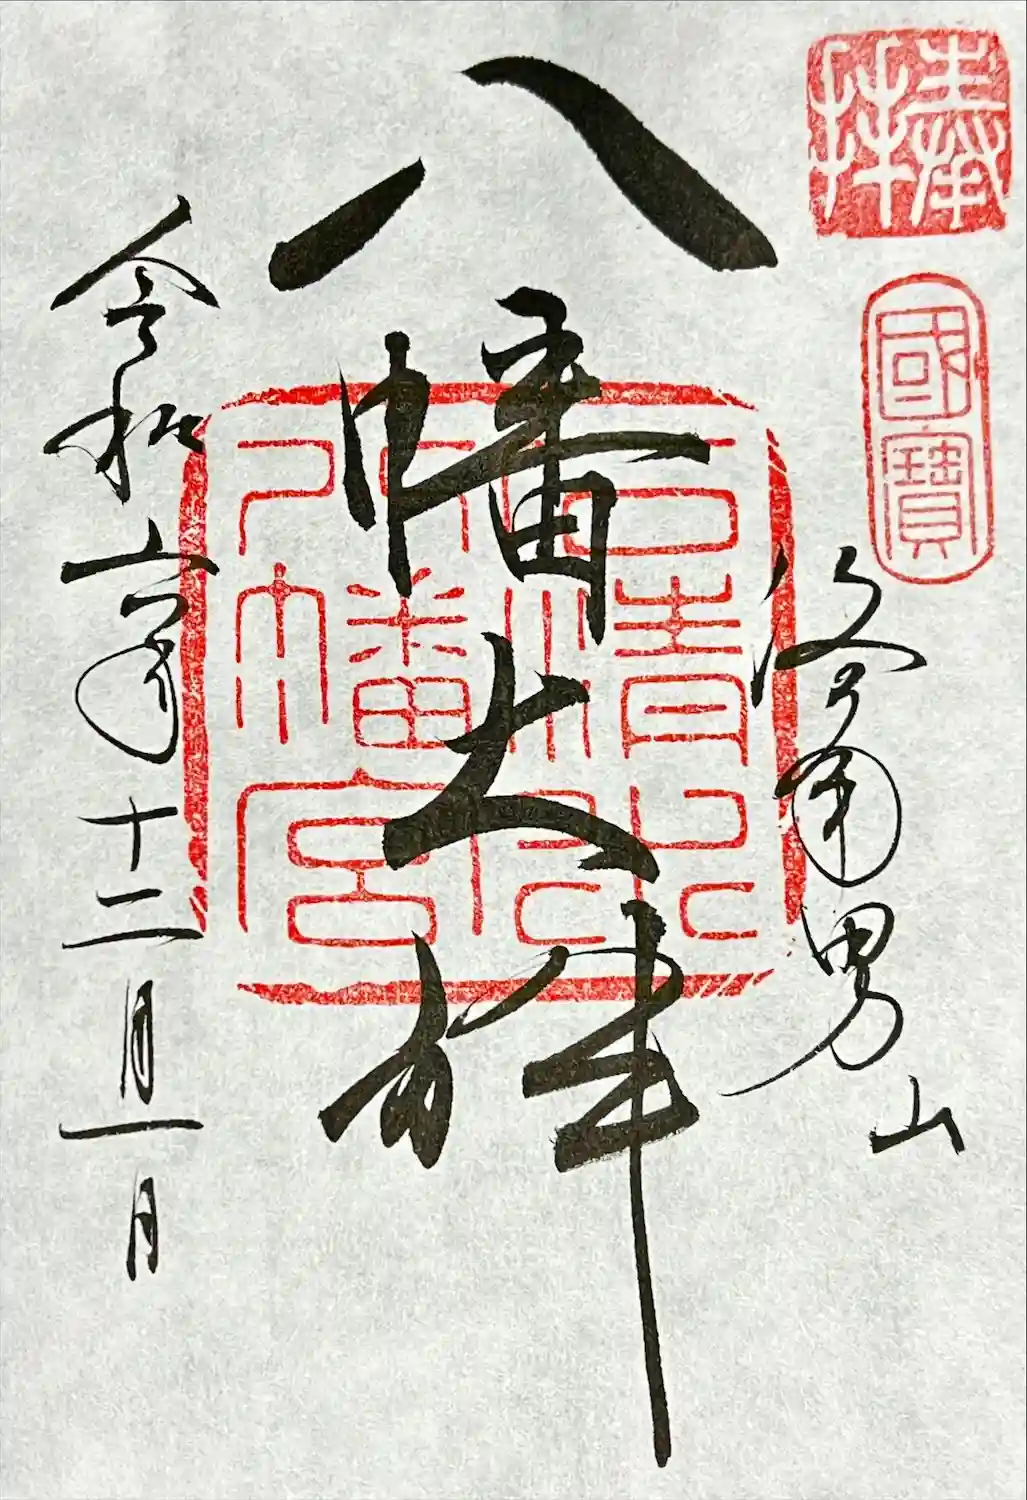 奉拝
國寳
洛南男山
八幡大神
石清水八幡宮
令和六年十二月一日